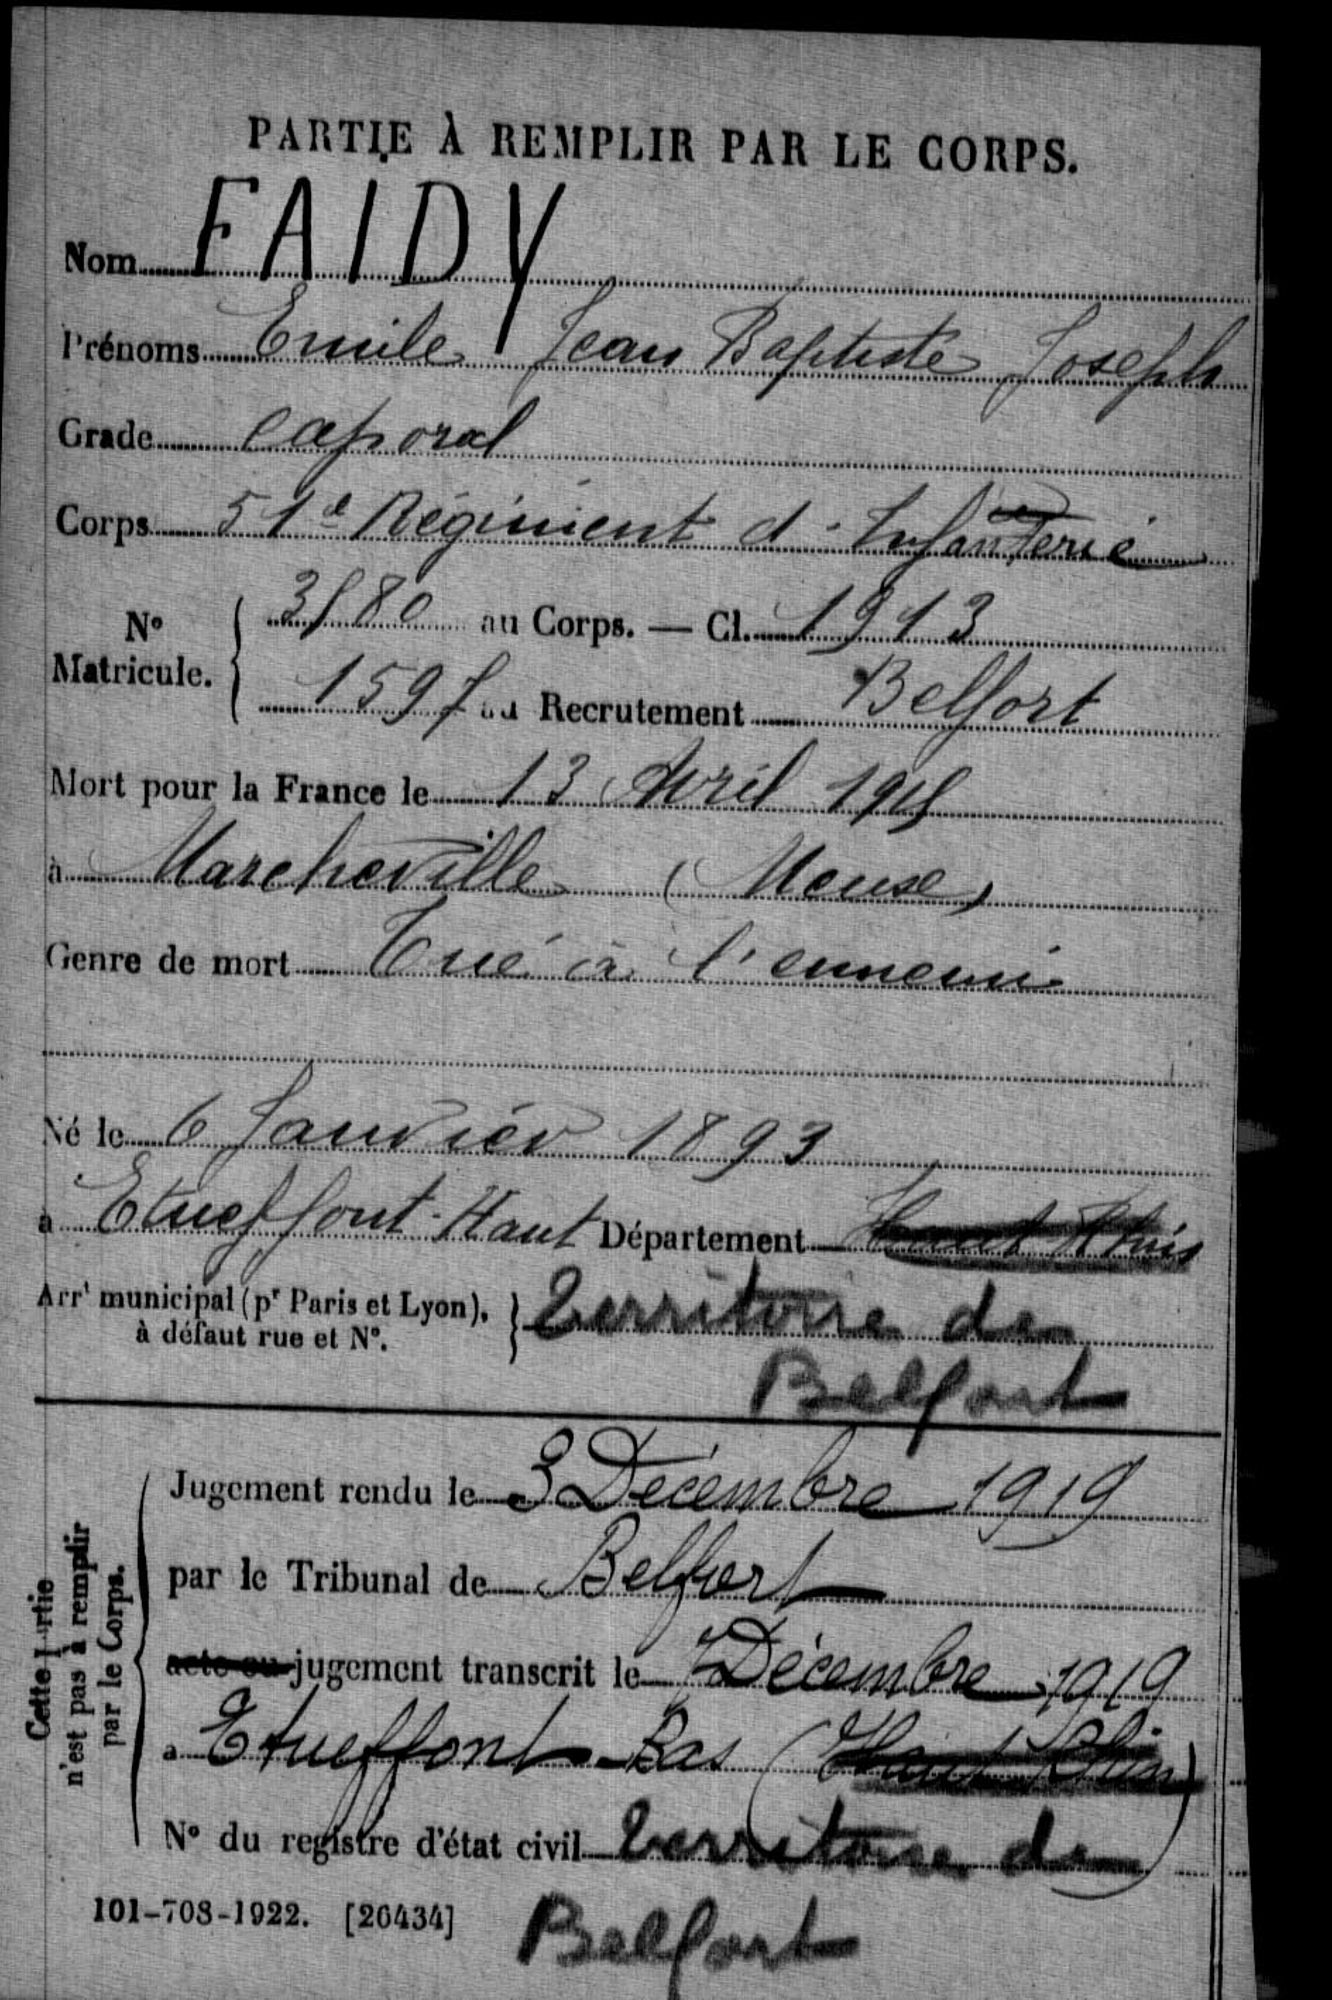 PARTIE À REMPLIR PAR LE CORPS.
Nom FAIDY
Prénoms Emile Jean Baptiste Joseph
Grade caporal
Corps 51e Régiment d'Infanterie
No Matricule. au Corps. — Cl. 1913
1597 au Recrutement Belfort
Mort pour la France le 13 Avril 1915
à Marcheville (Meuse)
Genre de mort Tué à l'ennemi
Né le 6 Janvier 1893
à Etueffont-Haut Département Haut Rhin
Arrt municipal (pr Paris et Lyon), à défaut rue et No. Territoire de
Belfort
Cette partie n'est pas à remplir par le Corps.
Jugement rendu le 3 Décembre 1919
par le Tribunal de Belfort
acte ou jugement transcrit le 7 Décembre 1919
à Etueffont-Bas (Haut Rhin)
No du registre d'état civil Territoire de
Belfort
101-708-1922. [26434]